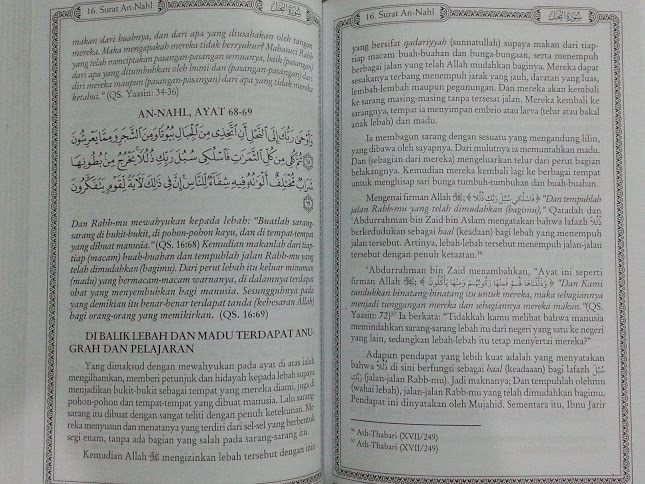 16. Surat An-Nahl
سُورَةُ النَّحْلِ
makan dari buahnya, dan dari apa yang diusahakan oleh tangan
mereka. Maka mengapakah mereka tidak bersyukur? Mahasuci Rabb
yang telah menciptakan pasangan-pasangan semuanya, baik (pasangan)
dari apa yang ditumbuhkan oleh bumi dan (pasangan-pasangan) dari
diri mereka maupun (pasangan-pasangan) dari apa yang tidak mereka
ketahui." (QS. Yaasin: 34-36)
AN-NAHL, AYAT 68-69
وَأَوْحَىٰ رَبُّكَ إِلَى ٱلنَّحْلِ أَنِ ٱتَّخِذِى مِنَ ٱلْجِبَالِ بُيُوتًا وَمِنَ ٱلشَّجَرِ وَمِمَّا يَعْرِشُونَ
ثُمَّ كُلِى مِن كُلِّ ٱلثَّمَرَٰتِ فَٱسْلُكِى سُبُلَ رَبِّكِ ذُلُلًا يَخْرُجُ مِنۢ بُطُونِهَا
شَرَابٌ مُّخْتَلِفٌ أَلْوَٰنُهُۥ فِيهِ شِفَآءٌ لِّلنَّاسِ إِنَّ فِى ذَٰلِكَ لَـَٔايَةً لِّقَوْمٍ يَتَفَكَّرُونَ
Dan Rabb-mu mewahyukan kepada lebah: "Buatlah sarang-
sarang di bukit-bukit, di pohon-pohon kayu, dan di tempat-tempat
yang dibuat manusia." (QS. 16:68) Kemudian makanlah dari tiap-
tiap (macam) buah-buahan dan tempuhlah jalan Rabb-mu yang
telah dimudahkan (bagimu). Dari perut lebah itu keluar minuman
(madu) yang bermacam-macam warnanya, di dalamnya terdapat
obat yang menyembuhkan bagi manusia. Sesungguhnya pada
yang demikian itu benar-benar terdapat tanda (kebesaran Allah)
bagi orang-orang yang memikirkan. (QS. 16:69)
DI BALIK LEBAH DAN MADU TERDAPAT ANU-
GRAH DAN PELAJARAN
Yang dimaksud dengan mewahyukan pada ayat di atas ialah
mengilhamkan, memberi petunjuk dan hidayah kepada lebah supaya
menjadikan bukit-bukit sebagai tempat yang mereka diami, juga di
pohon-pohon dan tempat-tempat yang dibuat manusia. Lalu sarang-
sarang itu dibuat dengan sangat teliti dengan penuh ketekunan. Me-
reka menyusun dan menatanya yang terdiri dari sel-sel yang berbentuk
segi enam, tanpa ada bagian yang salah pada sarang-sarang itu.
Kemudian Allah ﷻ mengizinkan lebah tersebut dengan izin
16. Surat An-Nahl
سُورَةُ النَّحْلِ
yang bersifat qadariyyah (sunnatullah) supaya makan dari tiap-
tiap macam buah-buahan dan bunga-bungaan, serta menempuh
berbagai jalan yang telah Allah mudahkan baginya. Mereka dapat
sesukanya terbang menempuh jarak yang jauh, daratan yang luas,
lembah-lembah maupun pegunungan. Dan mereka akan kembali
ke sarang masing-masing tanpa tersesat jalan. Mereka kembali ke
sarangnya, tempat ia menyimpan embrio atau larva (telur atau bakal
anak lebah) dan madu.
Ia membagun sarang dengan sesuatu yang mengandung lilin,
yang dibawa oleh sayapnya. Dari mulutnya ia memuntahkan madu.
Dan (sebagian dari mereka) mengeluarkan telur dari perut bagian
belakangnya. Kemudian mereka kembali lagi ke berbagai tempat
untuk menghisap sari bunga tumbuh-tumbuhan dan buah-buahan.
Mengenai firman Allah ﷻ ﴿ فَاسْلُكِي سُبُلَ رَبِّكِ ذُلُلًا ﴾ "Dan tempuhlah
jalan Rabb-mu yang telah dimudahkan (bagimu)," Qatadah dan
'Abdurrahman bin Zaid bin Aslam mengatakan bahwa lafazh ذُلُلًا
berkedudukan sebagai haal (keadaan) bagi lebah yang menempuh
jalan tersebut. Artinya, lebah-lebah tersebut menempuh jalan-jalan
tersebut dengan penuh ketaatan.⁵⁶
'Abdurrahman bin Zaid menambahkan, "Ayat ini seperti
firman Allah ﷻ ﴿ وَذَلَّلْنَاهَا لَهُمْ فَمِنْهَا رَكُوبُهُمْ وَمِنْهَا يَأْكُلُونَ ﴾ "Dan Kami
tundukkan binatang-binatang itu untuk mereka, maka sebagiannya
menjadi tunggangan mereka dan sebagiannya mereka makan."(QS.
Yaasin: 72)⁵⁷ Ia berkata: "Tidakkah kamu melihat bahwa manusia
memindahkan sarang-sarang lebah itu dari negeri yang satu ke negeri
yang lain, sedangkan lebah-lebah itu tetap menyertai mereka?"
Adapun pendapat yang lebih kuat adalah yang menyatakan
bahwa ذُلُلًا di sini berfungsi sebagai haal (keadaaan) bagi lafazh سُبُلَ
رَبِّكِ (jalan-jalan Rabb-mu). Jadi maknanya; Dan tempuhlah olehmu
(wahai lebah), jalan-jalan Rabb-mu yang telah dimudahkan bagimu.
Pendapat ini dinyatakan oleh Mujahid. Sementara itu, Ibnu Jarir
⁵⁶ Ath-Thabari (XVII/249)
⁵⁷ Ath-Thabari (XVII/249)